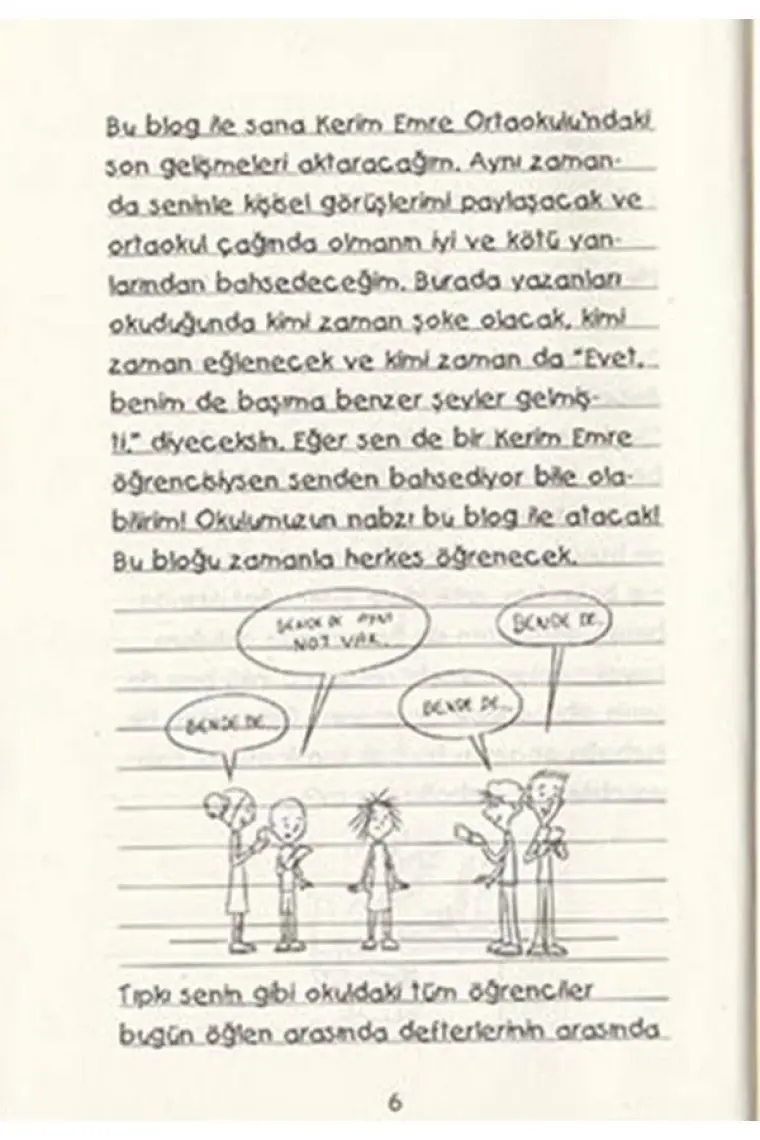 Bu blog ile sana Kerim Emre Ortaokulu'ndaki
son gelişmeleri aktaracağım. Aynı zaman-
da seninle kişisel görüşlerimi paylaşacak ve
ortaokul çağında olmanın iyi ve kötü yan-
larından bahsedeceğim. Burada yazanları
okuduğunda kimi zaman şoke olacak, kimi
zaman eğlenecek ve kimi zaman da "Evet,
benim de başıma benzer şeyler gelmiş-
ti." diyeceksin. Eğer sen de bir Kerim Emre
öğrencisiysen senden bahsediyor bile ola-
bilirim! Okulumuzun nabzı bu blog ile atacak!
Bu bloğu zamanla herkes öğrenecek.
BENDE DE AYNI
NOT VAR...
BENDE DE...
BENDE DE...
BENDE DE...
Tıpkı senin gibi okuldaki tüm öğrenciler
bugün öğlen arasında defterlerinin arasında
6